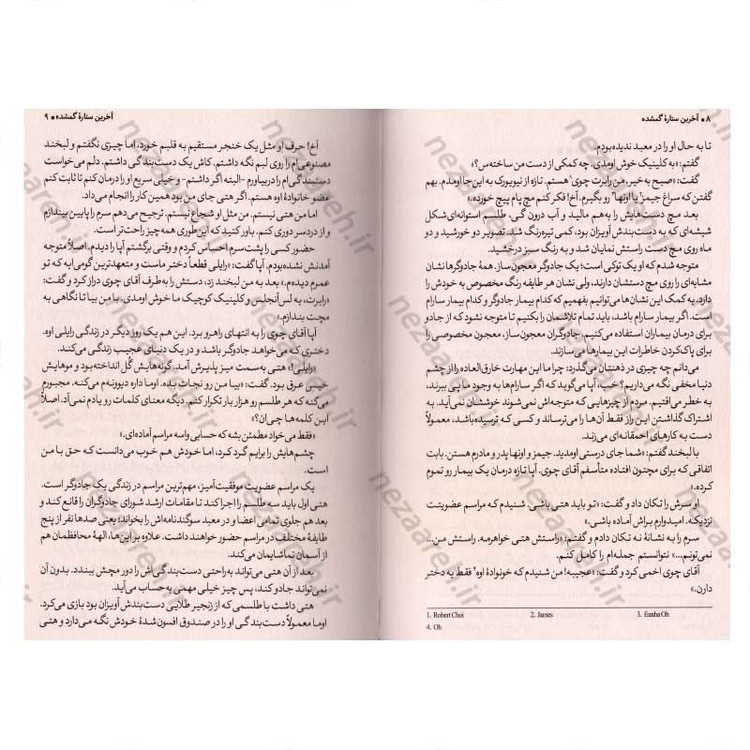 ۸ • آخرین ستارهٔ گمشده
تا به حال او را در معبد ندیده‌بودم.
گفتم: «به کلینیک خوش اومدی. چه کمکی از دست من ساخته‌س؟»
گفت: «صبح به‌خیر، من رابرت چوی¹ هستم. تازه از نیویورک به این‌جا اومدم. بهم
گفتن که سراغ جیمز² یا اونها³ رو بگیرم. آخ! فکر کنم مچ پام پیچ خورده.»
بعد مچ دست‌هایش را به‌هم مالید و آب درون گی، طلسم استوانه‌ای‌شکل
شیشه‌ای که به دست‌بندش آویزان بود، کمی تیره‌رنگ شد. تصویر دو خورشید و دو
ماه روی مچ دست راستش نمایان شد و به رنگ سبز درخشید.
متوجه شدم که او یک توکی است؛ یک جادوگر معجون‌ساز. همهٔ جادوگرها نشان
مشابه‌ای را روی مچ دستشان دارند، ولی نشان هر طایفه رنگ مخصوص به خودش را
دارد. به کمک این نشان‌ها می‌توانیم بفهمیم که کدام بیمار جادوگر و کدام بیمار سارام
است. اگر بیمار سارام باشد، باید تمام تلاشمان را بکنیم تا متوجه نشود که از جادو
برای درمان بیماران استفاده می‌کنیم. جادوگران معجون‌ساز، معجون مخصوصی را
برای پاک‌کردن خاطرات این بیمارها می‌سازند.
می‌دانم چه چیزی در ذهنتان می‌گذرد؛ چرا ما این مهارت خارق‌العاده را از چشم
دنیا مخفی نگه می‌داریم؟ خب، آپا می‌گوید که اگر سارام‌ها به وجود ما پی ببرند،
به خطر می‌افتیم. مردم از چیزهایی که متوجه‌اش نمی‌شوند خوششان نمی‌آید. به
اشتراک گذاشتن این راز فقط آن‌ها را می‌ترساند و کسی که ترسیده‌باشد، معمولاً
دست به کارهای احمقانه‌ای می‌زند.
با لبخند گفتم: «شما جای درستی اومدید. جیمز و اونها پدر و مادرم هستن. بابت
اتفاقی که برای مچتون افتاده متأسفم آقای چوی. آپا تازه درمان یک بیمار رو تموم
کرده.»
او سرش را تکان داد و گفت: «تو باید هتی باشی. شنیدم که مراسم عضویتت
نزدیکه. امیدوارم براش آماده باشی.»
سرم را به نشانهٔ نه تکان دادم و گفتم: «راستش هتی خواهرمه. راستش من...
نمی‌تونم...» نتوانستم جمله‌ام را کامل کنم.
آقای چوی اخمی کرد و گفت: «عجیبه! من شنیدم که خونوادهٔ اوه⁴ فقط یه دختر
دارن.»
1. Robert Choi 2. James 3. Eunha Oh
4. Oh
آخرین ستارهٔ گمشده • ۹
آخ! حرف او مثل یک خنجر مستقیم به قلبم خورد، اما چیزی نگفتم و لبخند
مصنوعی‌ام را روی لبم نگه داشتم. کاش یک دست‌بند گی داشتم. دلم می‌خواست
دست‌بند گی‌ام را دربیاورم -البته اگر داشتم- و خیلی سریع او را درمان کنم تا ثابت کنم
عضو خانوادهٔ اوه هستم. اگر هتی جای من بود همین کار را انجام می‌داد.
اما من هتی نیستم. من مثل او شجاع نیستم. ترجیح می‌دهم سرم را پایین بیندازم
و از دردسر دوری کنم. باور کنید که این‌طوری همه چیز راحت‌تر است.
حضور کسی را پشت‌سرم احساس کردم و وقتی برگشتم آپا را دیدم. اصلاً متوجه
آمدنش نشده‌بودم. آپا گفت: «رایلی قطعاً دختر ماست و متعهدترین گومی‌ایه که تو
عمرم دیده‌م.» بعد به من لبخند زد، دستش را به‌طرف آقای چوی دراز کرد و گفت:
«رابرت، به لس‌آنجلس و کلینیک کوچیک ما خوش اومدی. با من بیا تا نگاهی به
مچت بندازم.»
آپا آقای چوی را به انتهای راهرو برد. این هم یک روز دیگر در زندگی رایلی اوه،
دختری که می‌خواهد جادوگر باشد و در یک دنیای عجیب زندگی می‌کند.
«رایلی!» هتی به‌سمت میز پذیرش آمد. گونه‌هایش گُل انداخته‌بود و موهایش
خیس عرق بود. گفت: «بیا من رو نجات بده. اوما داره دیوونه‌م می‌کنه. مجبورم
می‌کنه که هر طلسم رو هزار بار تکرار کنم. دیگه معنای کلمات رو یادم نمی‌آد. اصلاً
این کلمه‌ها چی‌ان؟»
«فقط می‌خواد مطمئن بشه که حسابی واسه مراسم آماده‌ای.»
چشم‌هایش را برایم گرد کرد، اما خودش هم خوب می‌دانست که حق با من
است.
یک مراسم عضویت موفقیت‌آمیز، مهم‌ترین مراسم در زندگی یک جادوگر است.
هتی اول باید سه طلسم را اجرا کند تا مقامات ارشد شورای جادوگران را قانع کند و
بعد هم جلوی تمامی اعضا و در معبد سوگندنامه‌اش را بخواند؛ یعنی صدها نفر از پنج
طایفهٔ مختلف در مراسم حضور خواهند داشت. علاوه بر این‌ها، الههٔ محافظمان هم
از آسمان تماشایمان می‌کند.
بعد از آن هتی می‌تواند به‌راحتی دست‌بند گی‌اش را دور مچش ببندد. بدون آن
نمی‌تواند جادو کند، پس چیز خیلی مهمی به‌حساب می‌آید.
هتی داشت با طلسمی که از زنجیر طلایی دست‌بندش آویزان بود بازی می‌کرد.
اوما معمولاً دست‌بند گی او را در صندوق افسون‌شدهٔ خودش نگه می‌دارد و هتی